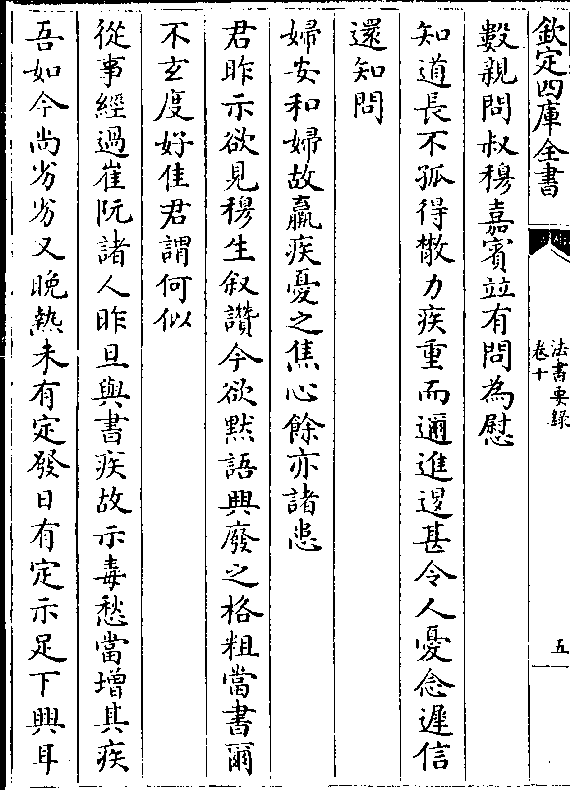 欽定四庫全書
法書要録
卷十
五
數親問叔穆嘉賓竝有問為慰
知道長不孤得散力疾重而邇進退甚令人憂念遲信
還知問
婦安和婦故羸疾憂之焦心餘亦諸患
君昨示欲見穆生叙讚今欲默語興廢之格粗當書爾
不玄度好佳君謂何似
從事經過崔阮諸人昨旦與書疾故示毒愁當增其疾
吾如今尚劣劣又晚熱未有定發日有定示足下興耳